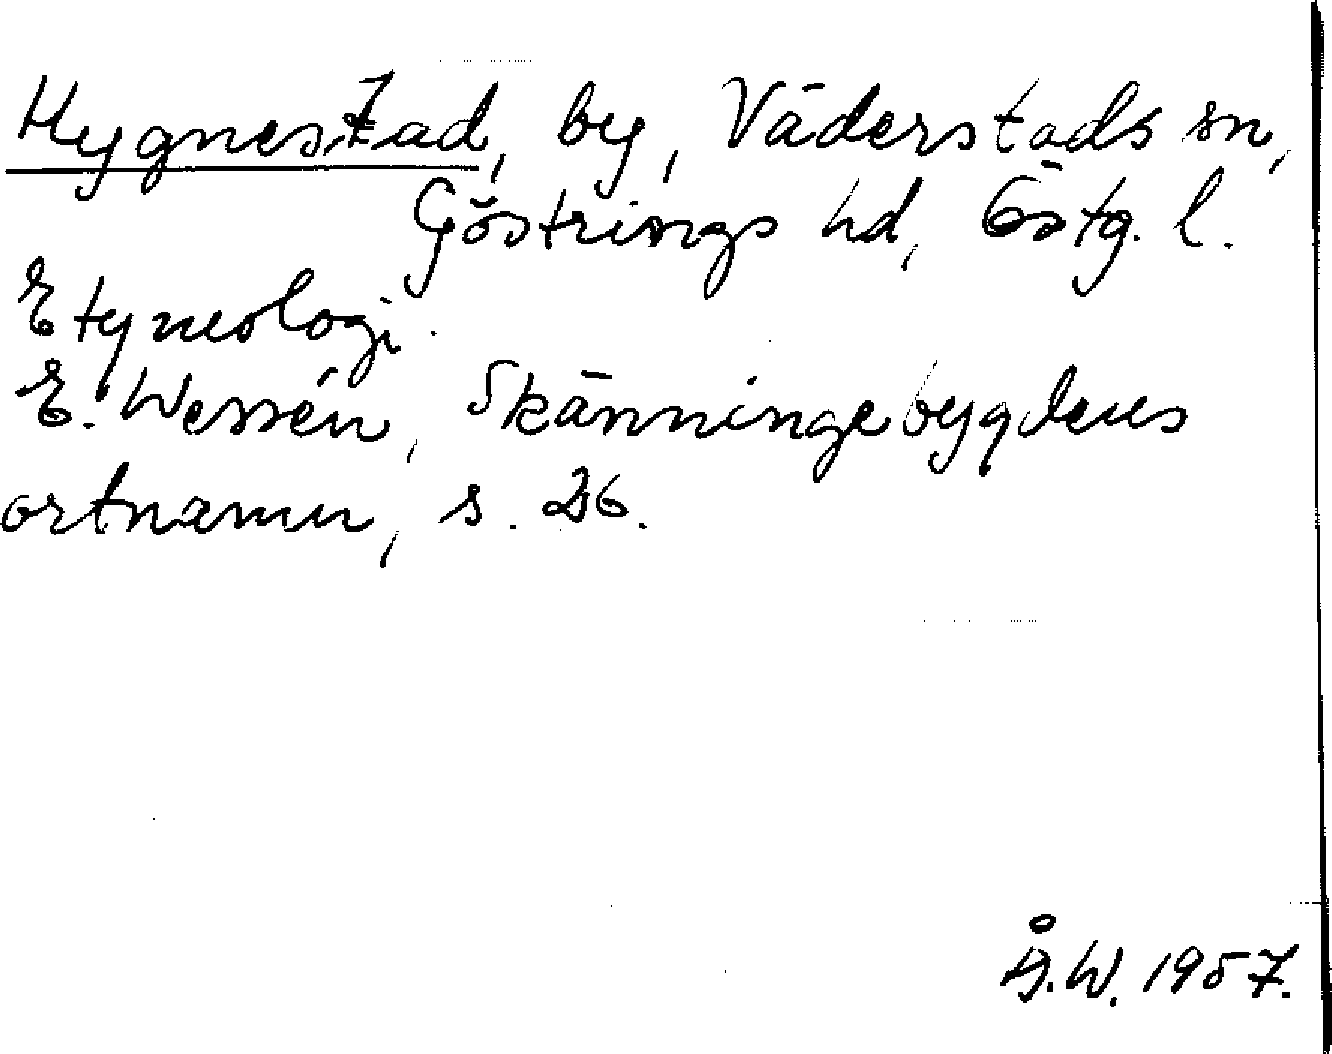 Hygnestad, by, Väderstads sn,
Göstrings hd, Östg. l.
Etymologi.
E. Wessén, Skänningebygdens
ortnamn, s. 26.
Å.W. 1957.